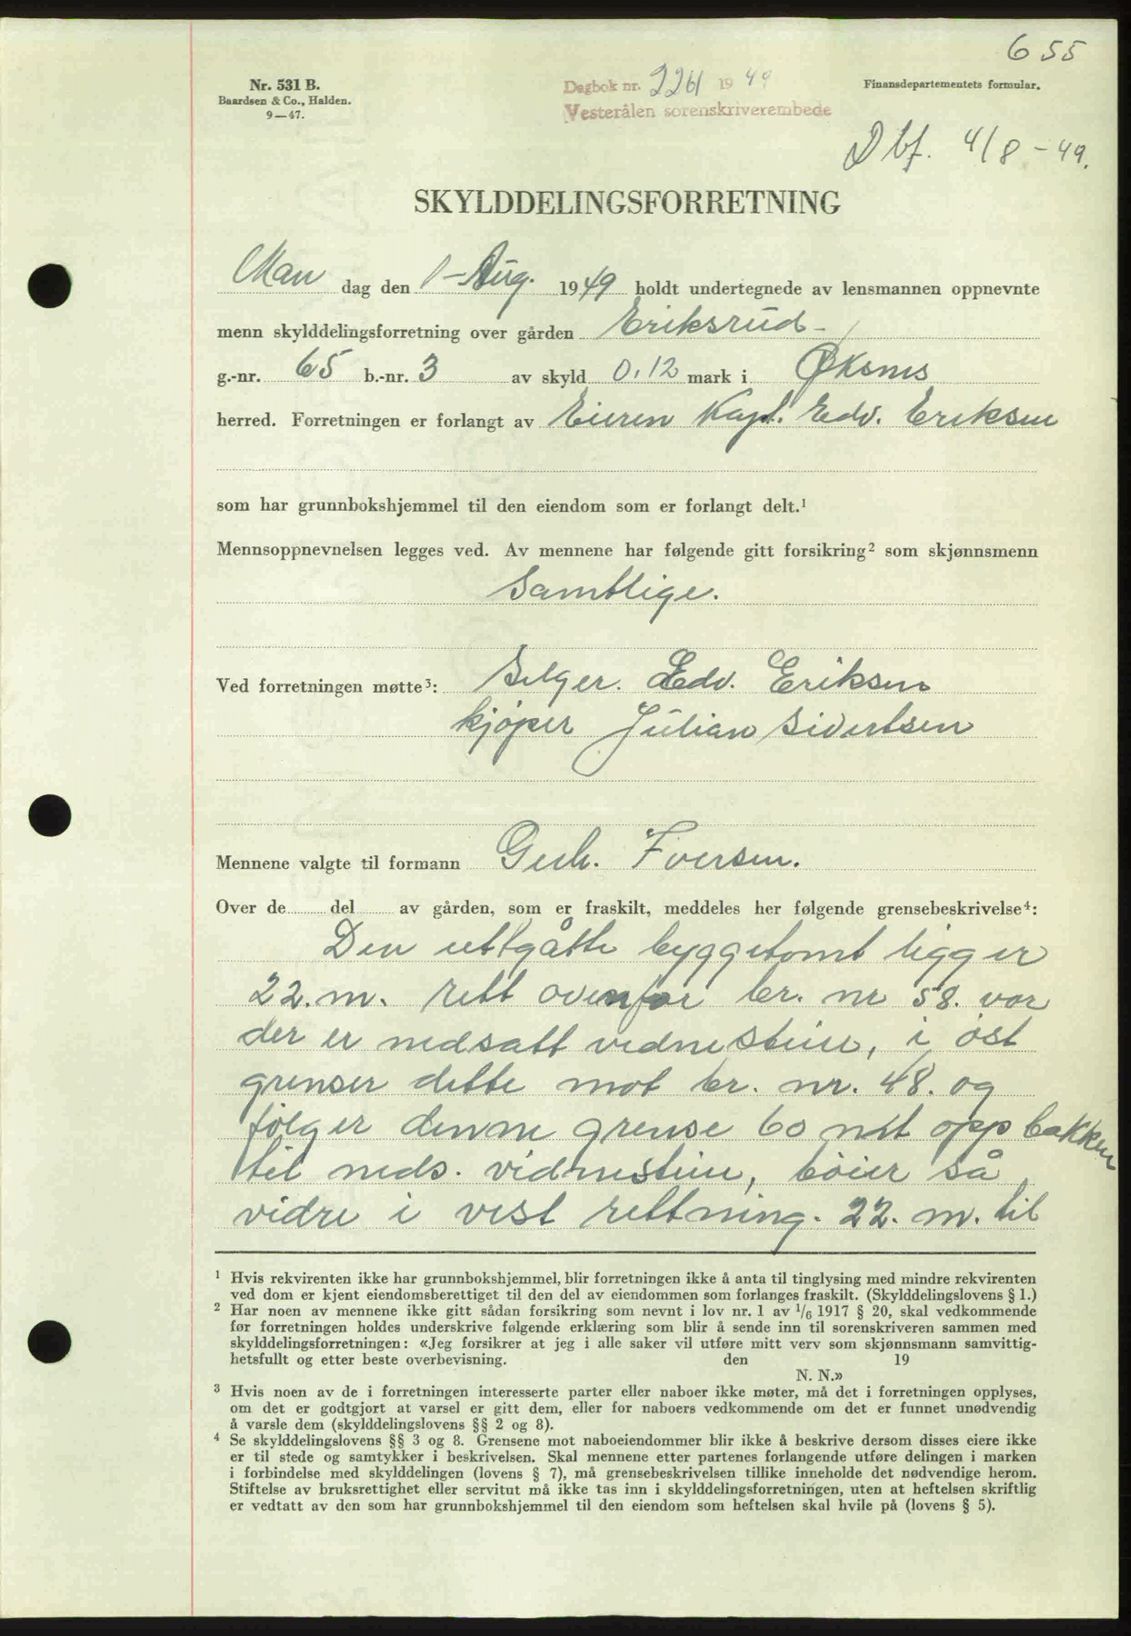 655
Nr. 531 B.
Baardsen & Co., Halden.
9—47.
Dagbok nr. 2261 1949
Vesterålen sorenskriverembede
Finansdepartementets formular.
Dbf. 4/8 - 49.
SKYLDDELINGSFORRETNING
Man dag den 1-Aug. 1949 holdt undertegnede av lensmannen oppnevnte
menn skylddelingsforretning over gården Eriksrud-
g.-nr. 65 b.-nr. 3 av skyld 0.12 mark i Øksnes
herred. Forretningen er forlangt av Eieren Kapt. Edv. Eriksen
som har grunnbokshjemmel til den eiendom som er forlangt delt.¹
Mennsoppnevnelsen legges ved. Av mennene har følgende gitt forsikring² som skjønnsmenn
Samtlige.
Ved forretningen møtte³: Selger. Edv. Eriksen
kjøper Julian Sivertsen
Mennene valgte til formann Gerh. Iversen.
Over de del av gården, som er fraskilt, meddeles her følgende grensebeskrivelse⁴:
Den uttgåtte byggetomt ligger
22. m. rett ovenfor br. nr 58. vor
der er nedsatt vidnesteine, i øst
grenser dette mot br. nr. 48. og
følger denne grense 60 mt opp bakken
til neds. vidnesteine, bøier så
vidre i vest rettning. 22. m. til
¹ Hvis rekvirenten ikke har grunnbokshjemmel, blir forretningen ikke å anta til tinglysing med mindre rekvirenten
ved dom er kjent eiendomsberettiget til den del av eiendommen som forlanges fraskilt. (Skylddelingslovens § 1.)
² Har noen av mennene ikke gitt sådan forsikring som nevnt i lov nr. 1 av 1/6 1917 § 20, skal vedkommende
før forretningen holdes underskrive følgende erklæring som blir å sende inn til sorenskriveren sammen med
skylddelingsforretningen: «Jeg forsikrer at jeg i alle saker vil utføre mitt verv som skjønnsmann samvittig-
hetsfullt og etter beste overbevisning. den 19
N. N.»
³ Hvis noen av de i forretningen interesserte parter eller naboer ikke møter, må det i forretningen opplyses,
om det er godtgjort at varsel er gitt dem, eller for naboers vedkommende om det er funnet unødvendig
å varsle dem (skylddelingslovens §§ 2 og 8).
⁴ Se skylddelingslovens §§ 3 og 8. Grensene mot naboeiendommer blir ikke å beskrive dersom disses eiere ikke
er til stede og samtykker i beskrivelsen. Skal mennene etter partenes forlangende utføre delingen i marken
i forbindelse med skylddelingen (lovens § 7), må grensebeskrivelsen tillike inneholde det nødvendige herom.
Stiftelse av bruksrettighet eller servitut må ikke tas inn i skylddelingsforretningen, uten at heftelsen skriftlig
er vedtatt av den som har grunnbokshjemmel til den eiendom som heftelsen skal hvile på (lovens § 5).